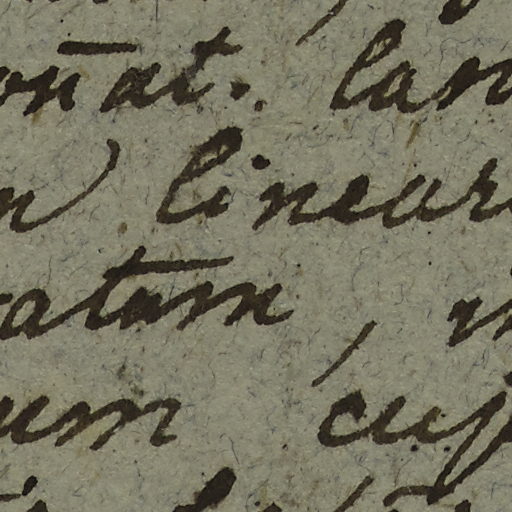 on̄at. lan
n linear
atum, in
um cuj